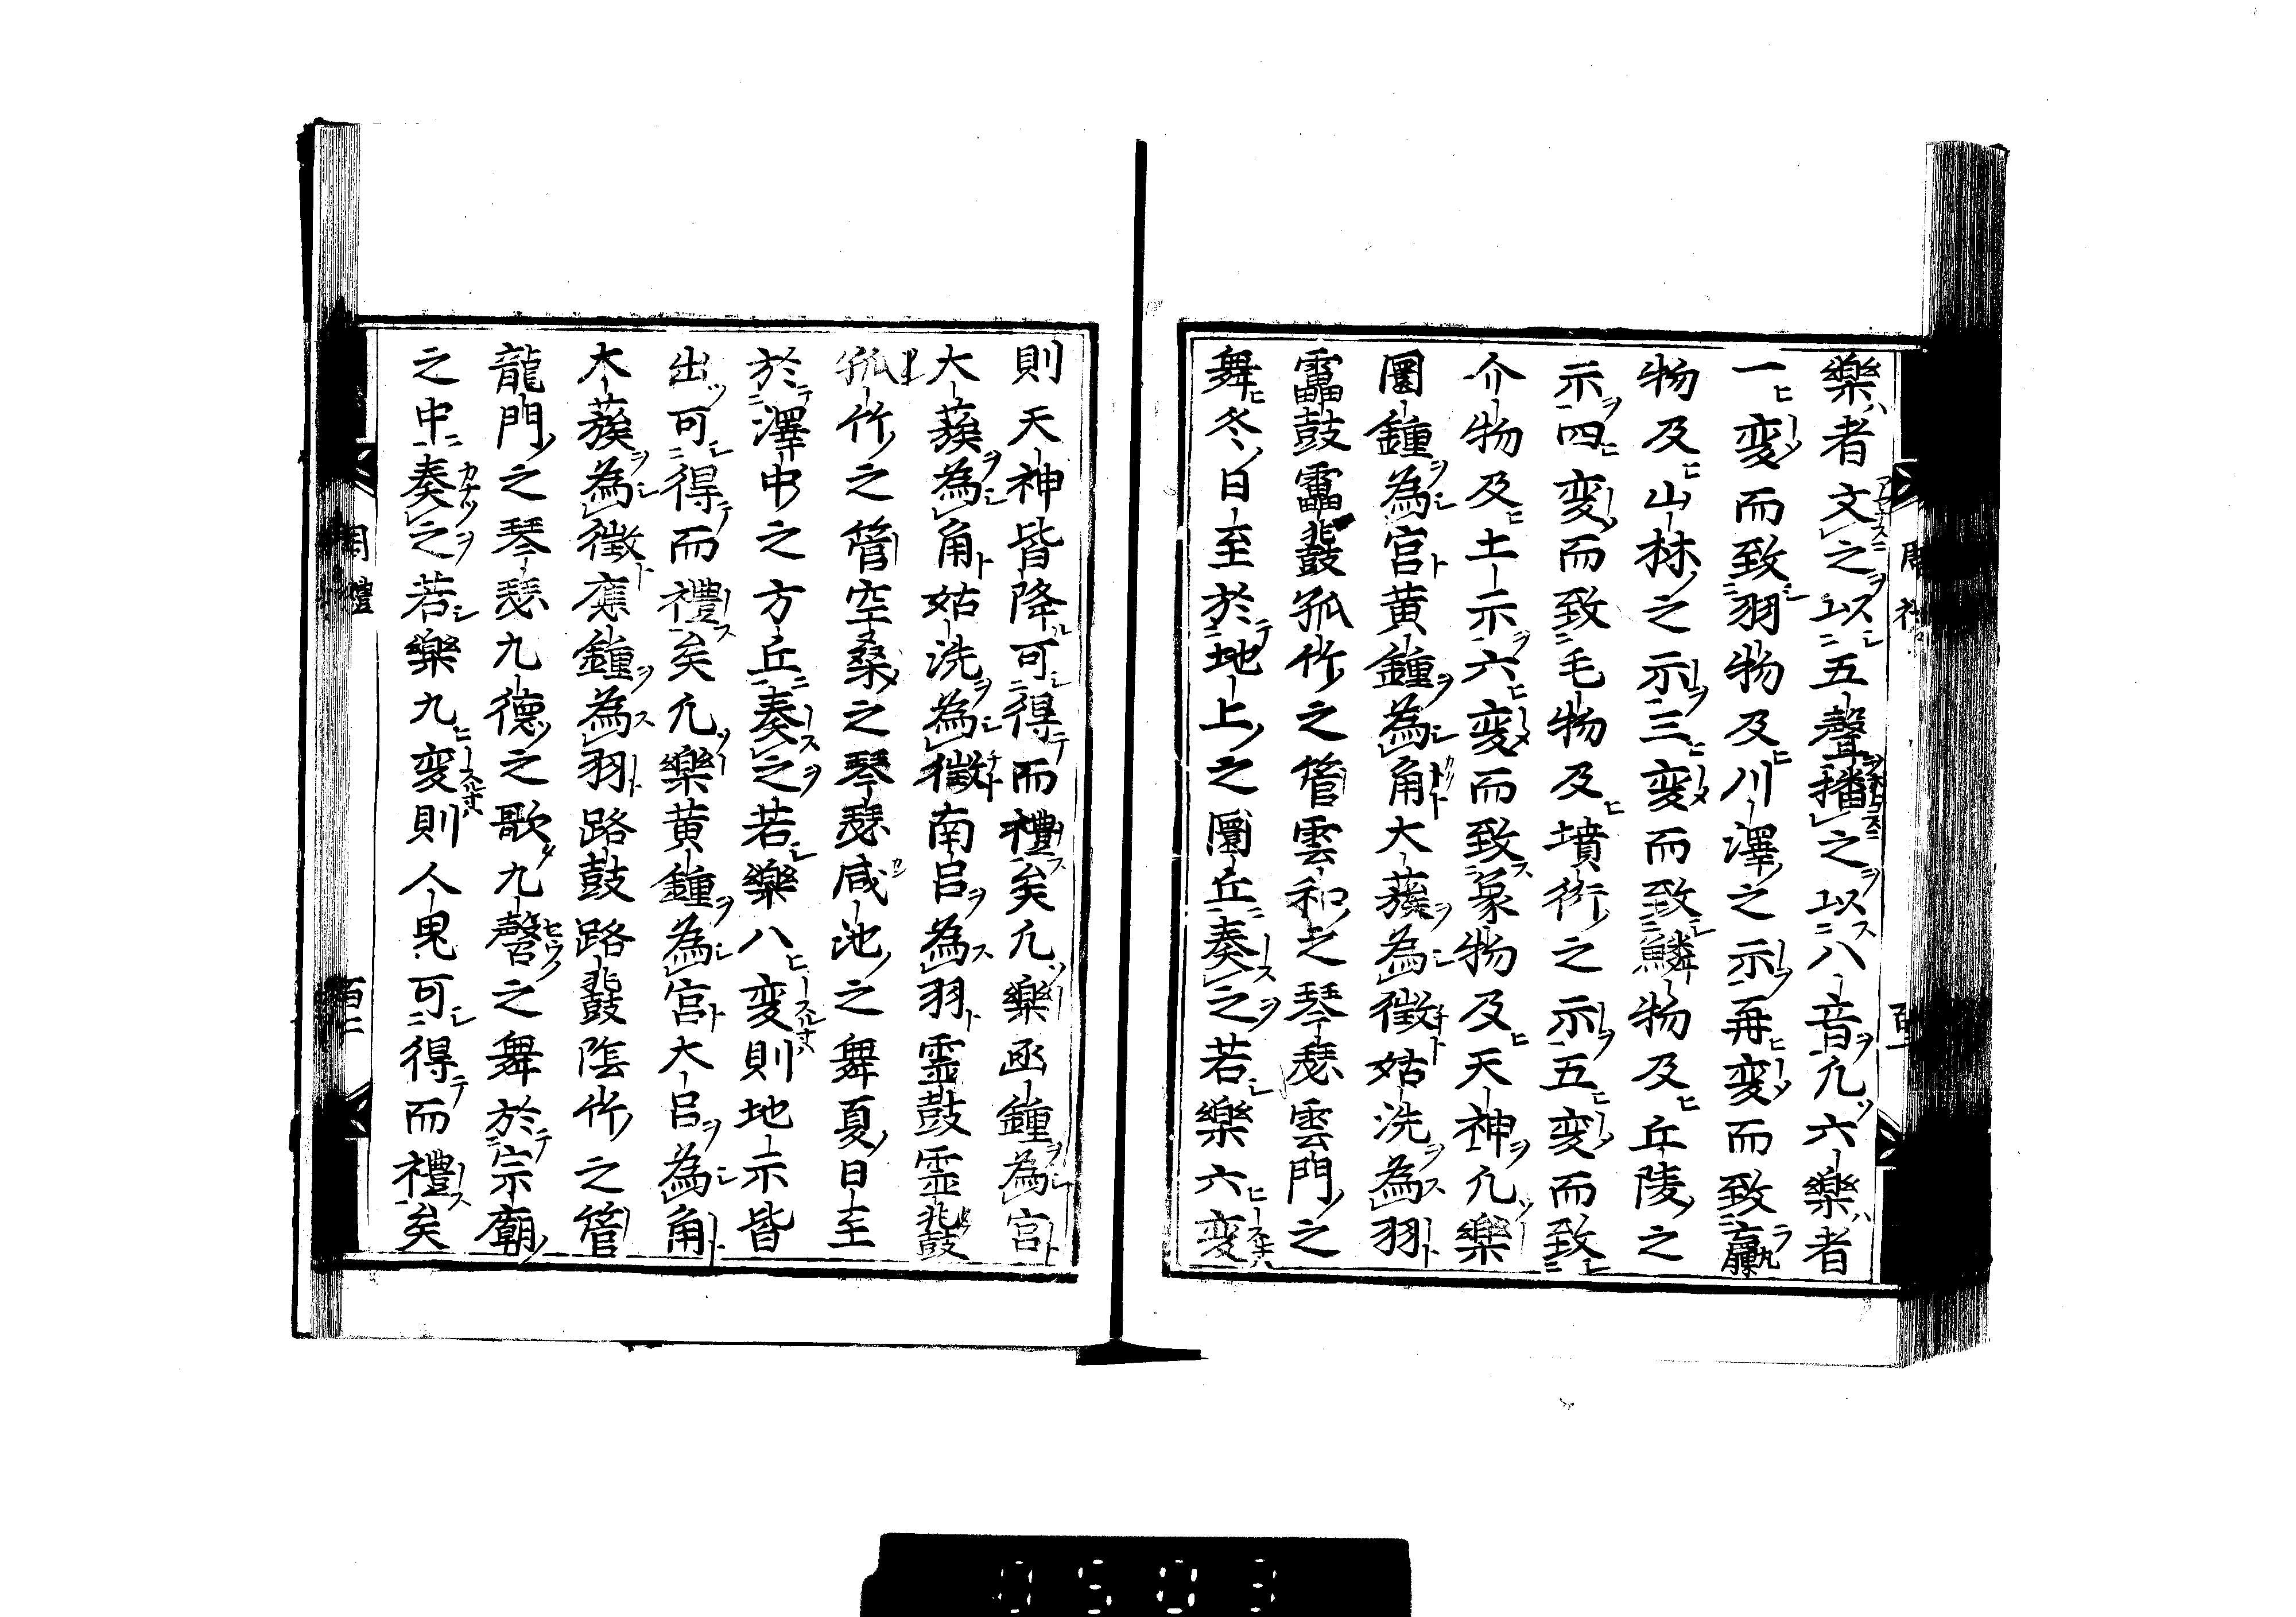 樂者文之以五聲播之以八音凢六樂者
一変而致羽物及川澤之示再変而致臝
物及山林之示三変而致鱗物及丘陵之
示四変而致毛物及墳衍之示五変而致
介物及土示六変而致象物及天神凢樂
圜鍾為宮黄鍾為角大蔟為徵姑洗為羽
靁鼓靁鼗孤竹之管雲和之琴瑟雲門之
舞冬日至於地上之圜丘奏之若樂六変
則天神皆降可得而禮矣凢樂函鍾為宮
大蔟為角姑洗為徵南呂為羽霊鼓霊鼗
孤竹之管空桑之琴瑟咸池之舞夏日至
於澤中之方丘奏之若樂八変則地示皆
出可得而禮矣凢樂黄鍾為宮大呂為角
大蔟為徵應鍾為羽路鼓路鼗陰竹之管
龍門之琴瑟九德之歌九磬之舞於宗廟
之中奏之若樂九変則人鬼可得而禮矣
周禮
百二
0503